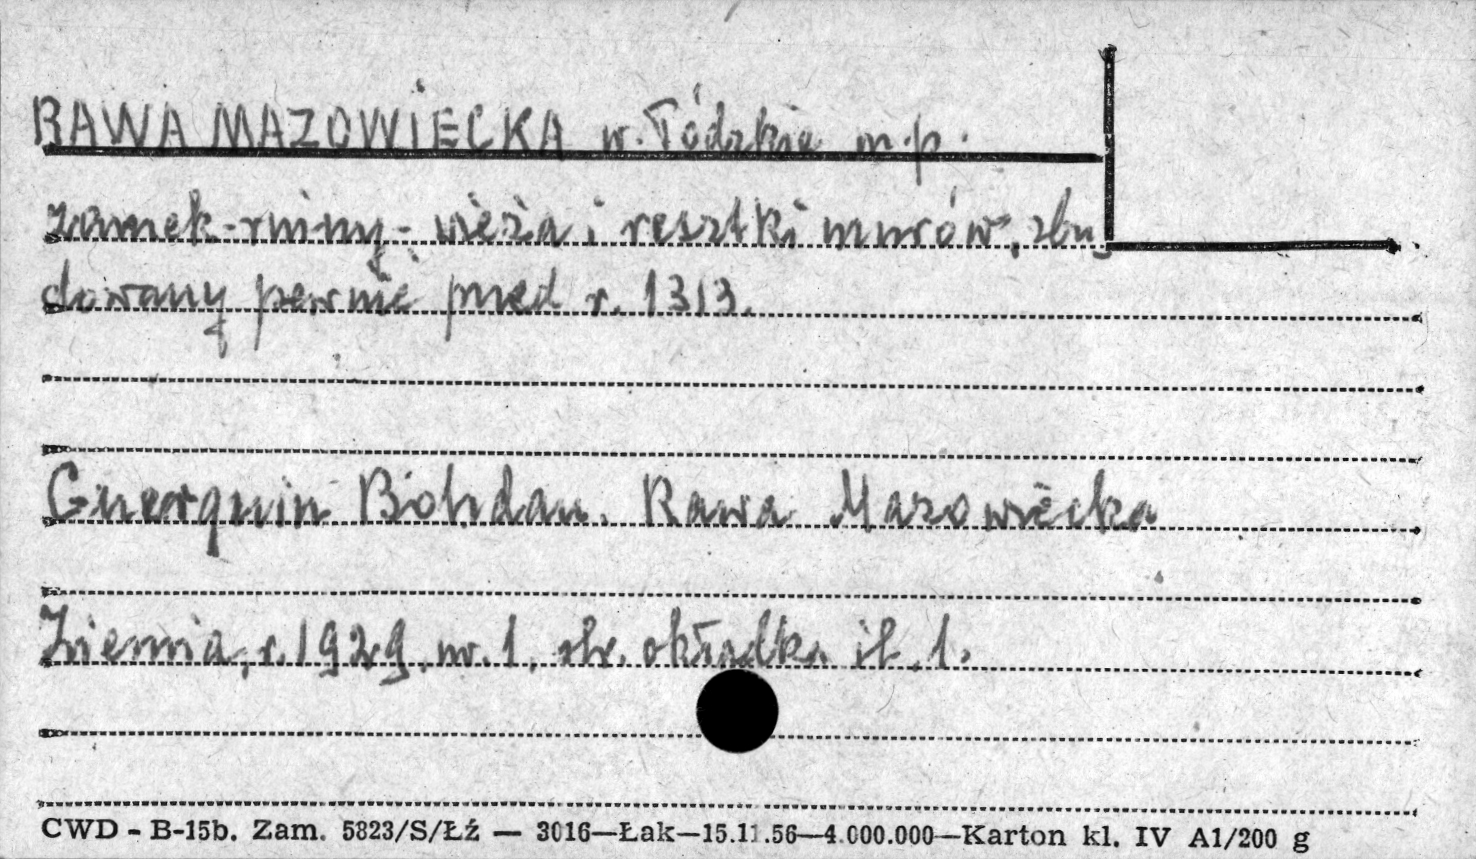 RAWA MAZOWIECKA w. Łódzkie m.p.
zamek-ruiny- wieża i resztki murów, zbu
dowany pewnie przed r. 1313.
Guerquin Bohdan. Rawa Mazowiecka
Ziemia, r. 1929. nr. 1, str. okładka il. 1.
CWD - B-15b. Zam. 5823/S/Łź — 3016—Łak—15.11.56—4.000.000—Karton kl. IV A1/200 g